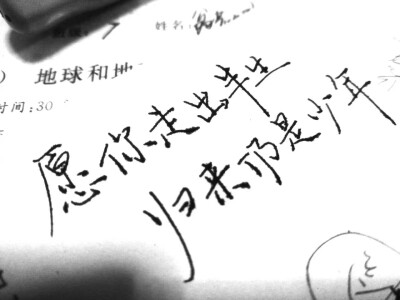 姓名:
地球和地
时间:30
愿你走出半生
归来仍是少年